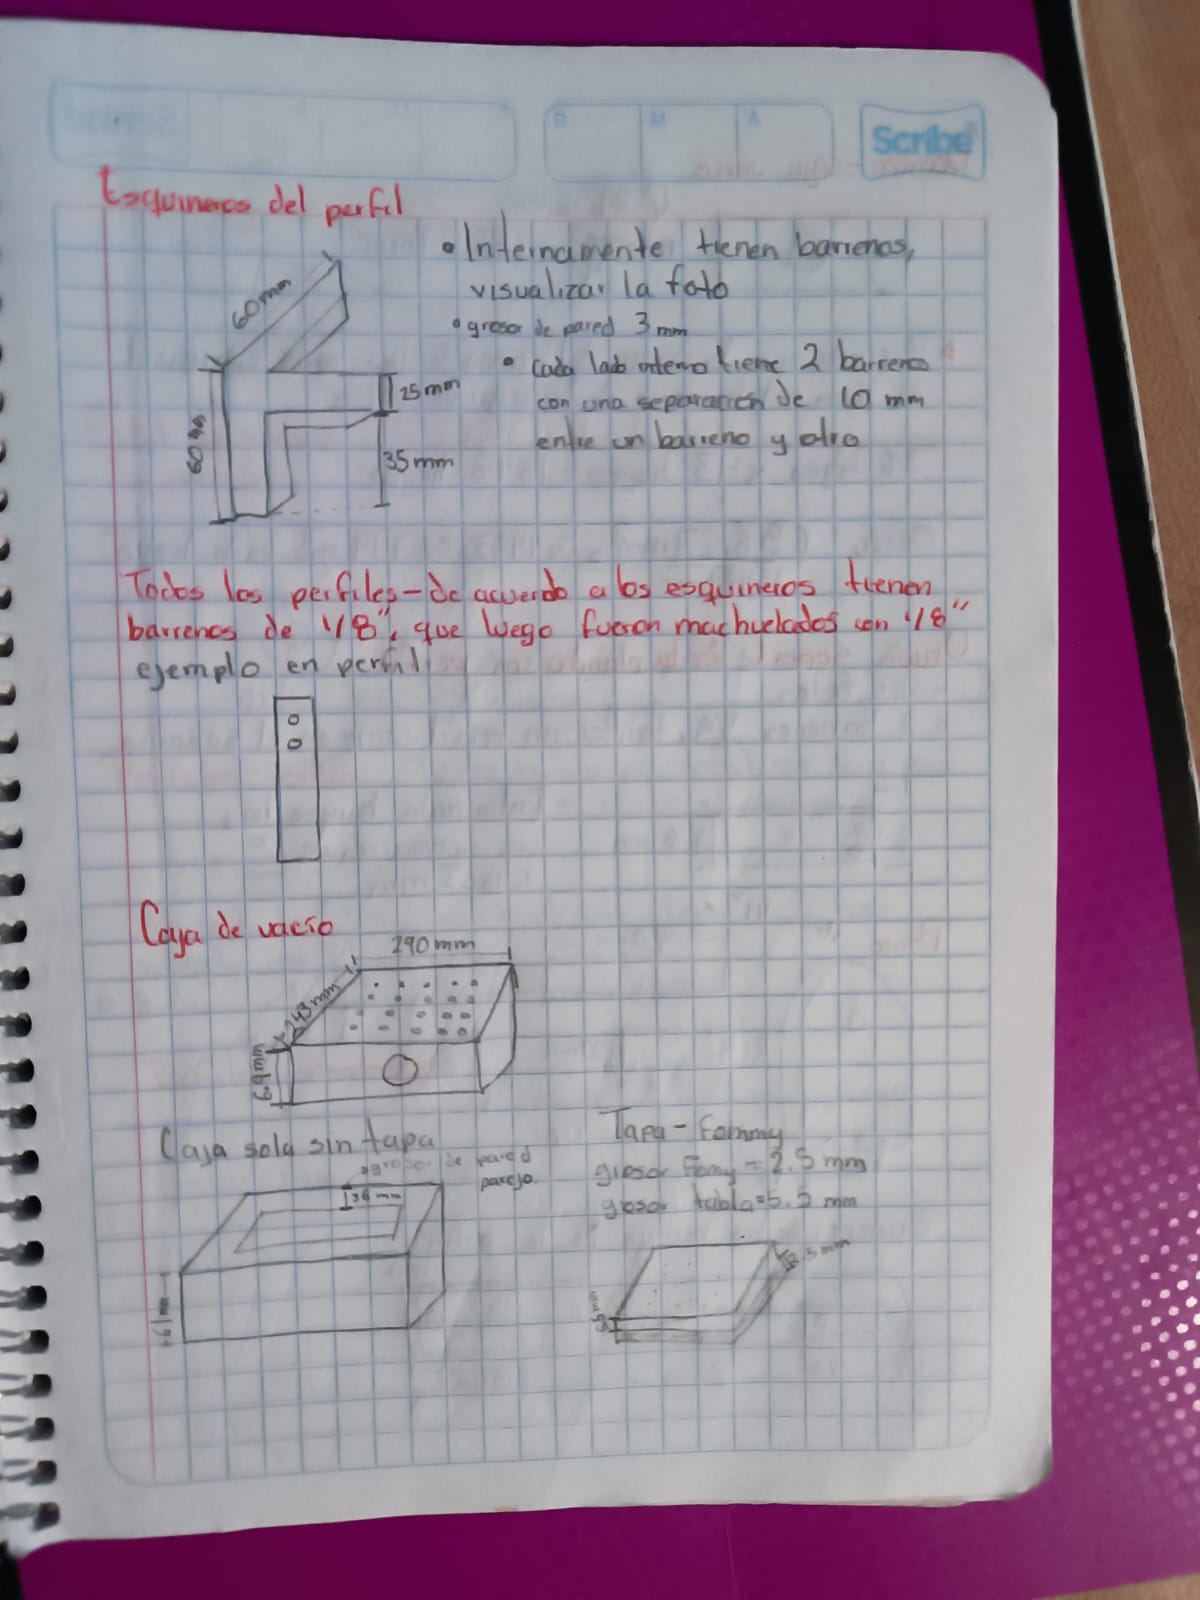 D M A Scribe
Esquineros del perfil
• Internamente tienen barrenos,
visualizar la foto
• grosor de pared 3 mm
• cada lado interno tiene 2 barrenos
con una separación de 10 mm
entre un barreno y otro
60 mm
60 mm
25 mm
35 mm
Todos los perfiles - de acuerdo a los esquineros tienen
barrenos de 1/8", que luego fueron machuelados con 1/8"
ejemplo en perfil
Caja de vacío
290 mm
243 mm
69mm
Caja sola sin tapa
• grosor de pared
parejo.
36 mm
61 mm
Tapa - fommy
grosor Fomy = 2.5 mm
grosor tabla = 5.5 mm
2.5 mm